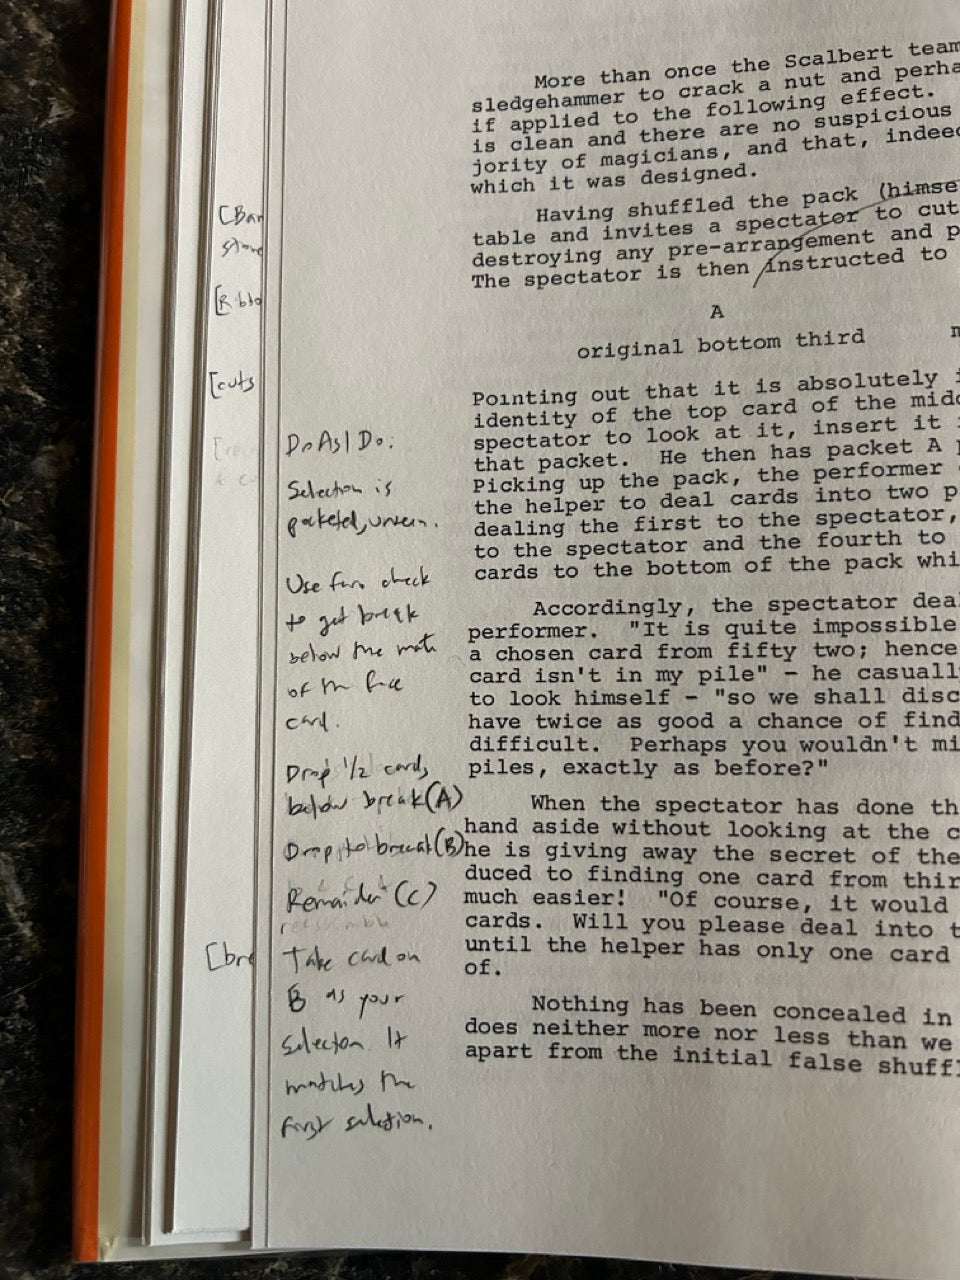 More than once the Scalbert team
sledgehammer to crack a nut and perha
if applied to the following effect.
is clean and there are no suspicious
jority of magicians, and that, indeed
which it was designed.
Having shuffled the pack (himse
table and invites a spectator to cut
destroying any pre-arrangement and p
The spectator is then instructed to
A
original bottom third
Pointing out that it is absolutely i
identity of the top card of the midd
spectator to look at it, insert it i
that packet. He then has packet A p
Picking up the pack, the performer
the helper to deal cards into two p
dealing the first to the spectator,
to the spectator and the fourth to
cards to the bottom of the pack whi
Accordingly, the spectator deal
performer. "It is quite impossible
a chosen card from fifty two; hence
card isn't in my pile" - he casually
to look himself - "so we shall disc
have twice as good a chance of find
difficult. Perhaps you wouldn't mi
piles, exactly as before?"
When the spectator has done th
hand aside without looking at the c
he is giving away the secret of the
duced to finding one card from thir
much easier! "Of course, it would
cards. Will you please deal into t
until the helper has only one card
of.
Nothing has been concealed in
does neither more nor less than we
apart from the initial false shuffl
[Ban
[Ribbo
[cuts
[bre
Do As I Do:
Selection is
pocketed, unseen.
Use faro check
to get break
below the mate
of the face
card.
Drop 1/2 cards
below break (A)
Drop to break (B)
Remainder (C)
Take card on
B as your
selection. It
matches the
first selection.